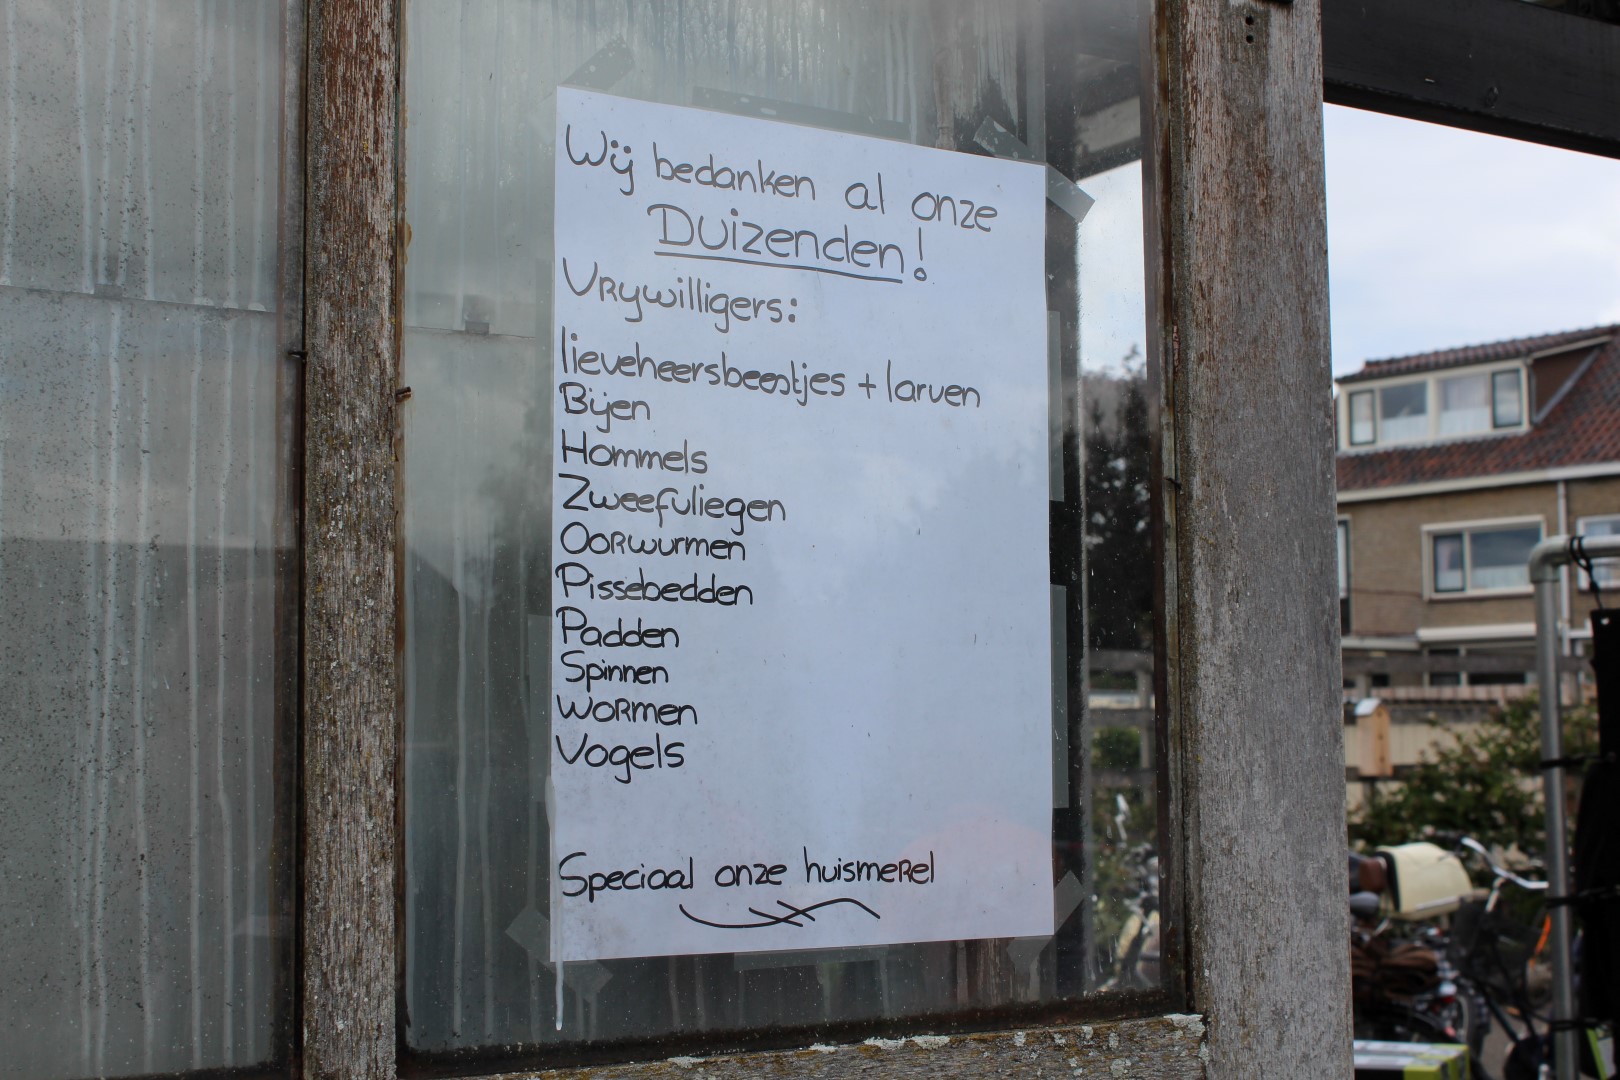 Wij bedanken al onze
Duizenden!
Vrywilligers:
lieveheersbeestjes + larven
Bijen
Hommels
Zweefvliegen
Oorwurmen
Pissebedden
Padden
Spinnen
Wormen
Vogels
Speciaal onze huismerel